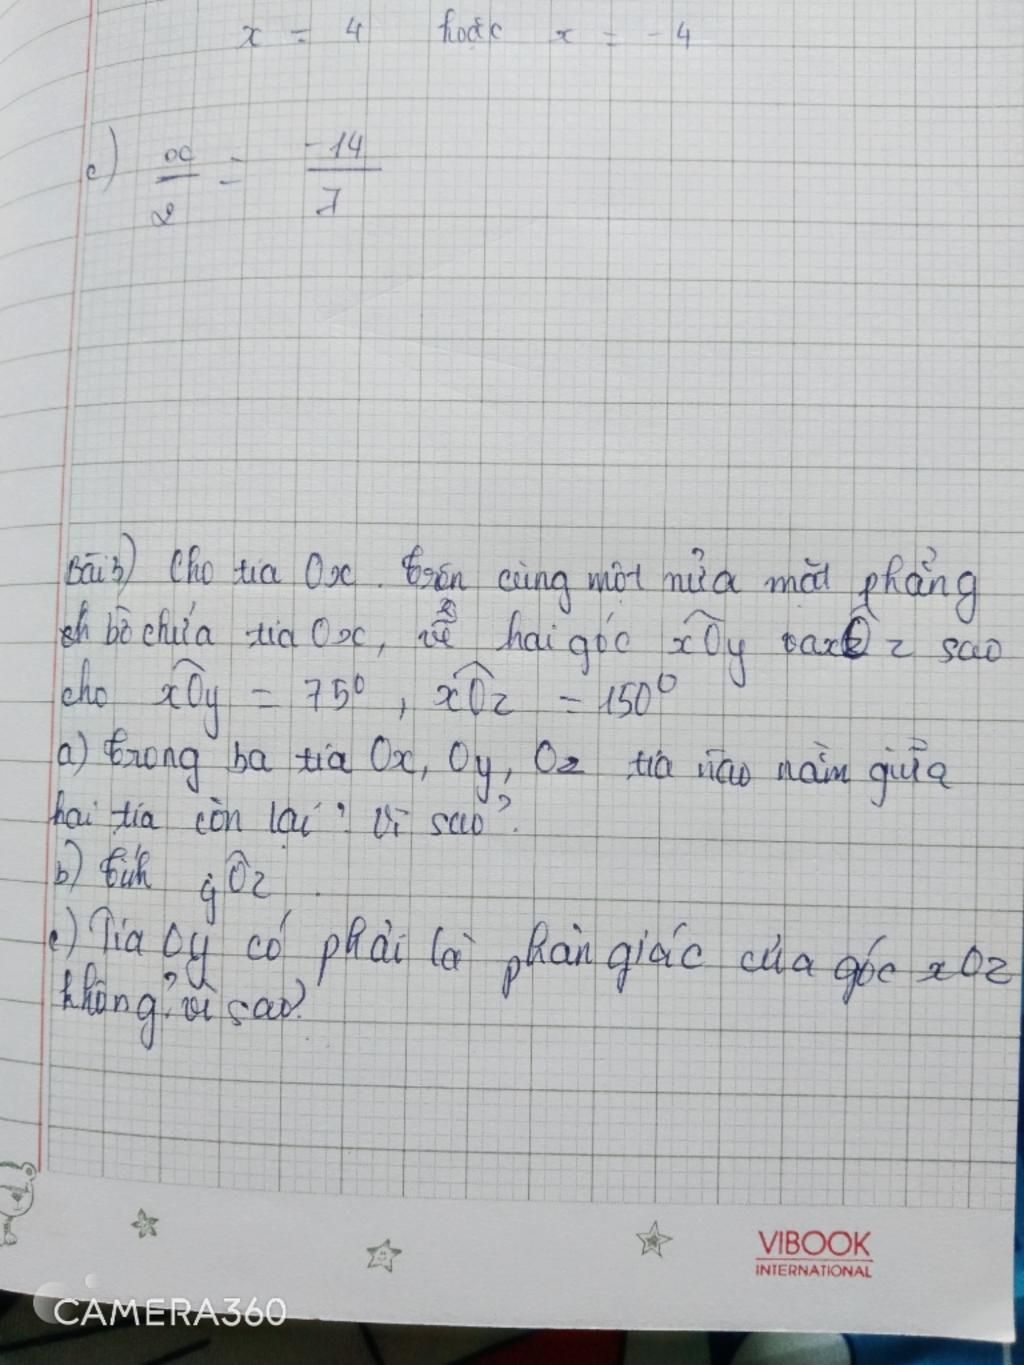 x = 4 hoặc x = -4
c) x/2 = -14/7
Bài 3) Cho tia Ox. Trên cùng một nửa mặt phẳng
bờ chứa tia Ox, vẽ hai góc xOy và xOz sao
cho xOy = 75⁰, xOz = 150⁰
a) Trong ba tia Ox, Oy, Oz tia nào nằm giữa
hai tia còn lại? Vì sao?
b) Tính yOz.
c) Tia Oy có phải là phân giác của góc xOz
không? vì sao?
VIBOOK
INTERNATIONAL
CAMERA360